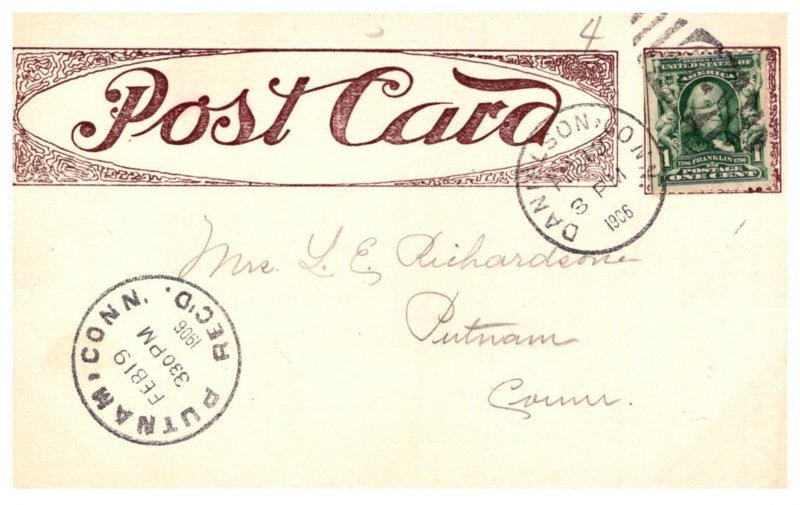 4
Post Card
SERIES 1902
UNITED STATES OF
AMERICA
1 1706 FRANKLIN 1790 1
POSTAGE
ONE CENT
DANIELSON, CONN.
FEB
3 PM
1906
Mrs. L. E. Richardson
Putnam
Conn.
PUTNAM, CONN. REC'D.
FEB 19
330 PM
1906